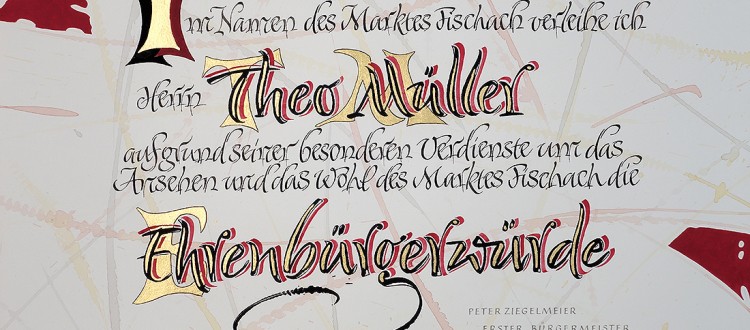 Im Namen des Marktes Fischach verleihe ich
Herrn Theo Müller
aufgrund seiner besonderen Verdienste um das
Ansehen und das Wohl des Marktes Fischach die
Ehrenbürgerwürde
PETER ZIEGELMEIER
ERSTER BÜRGERMEISTER